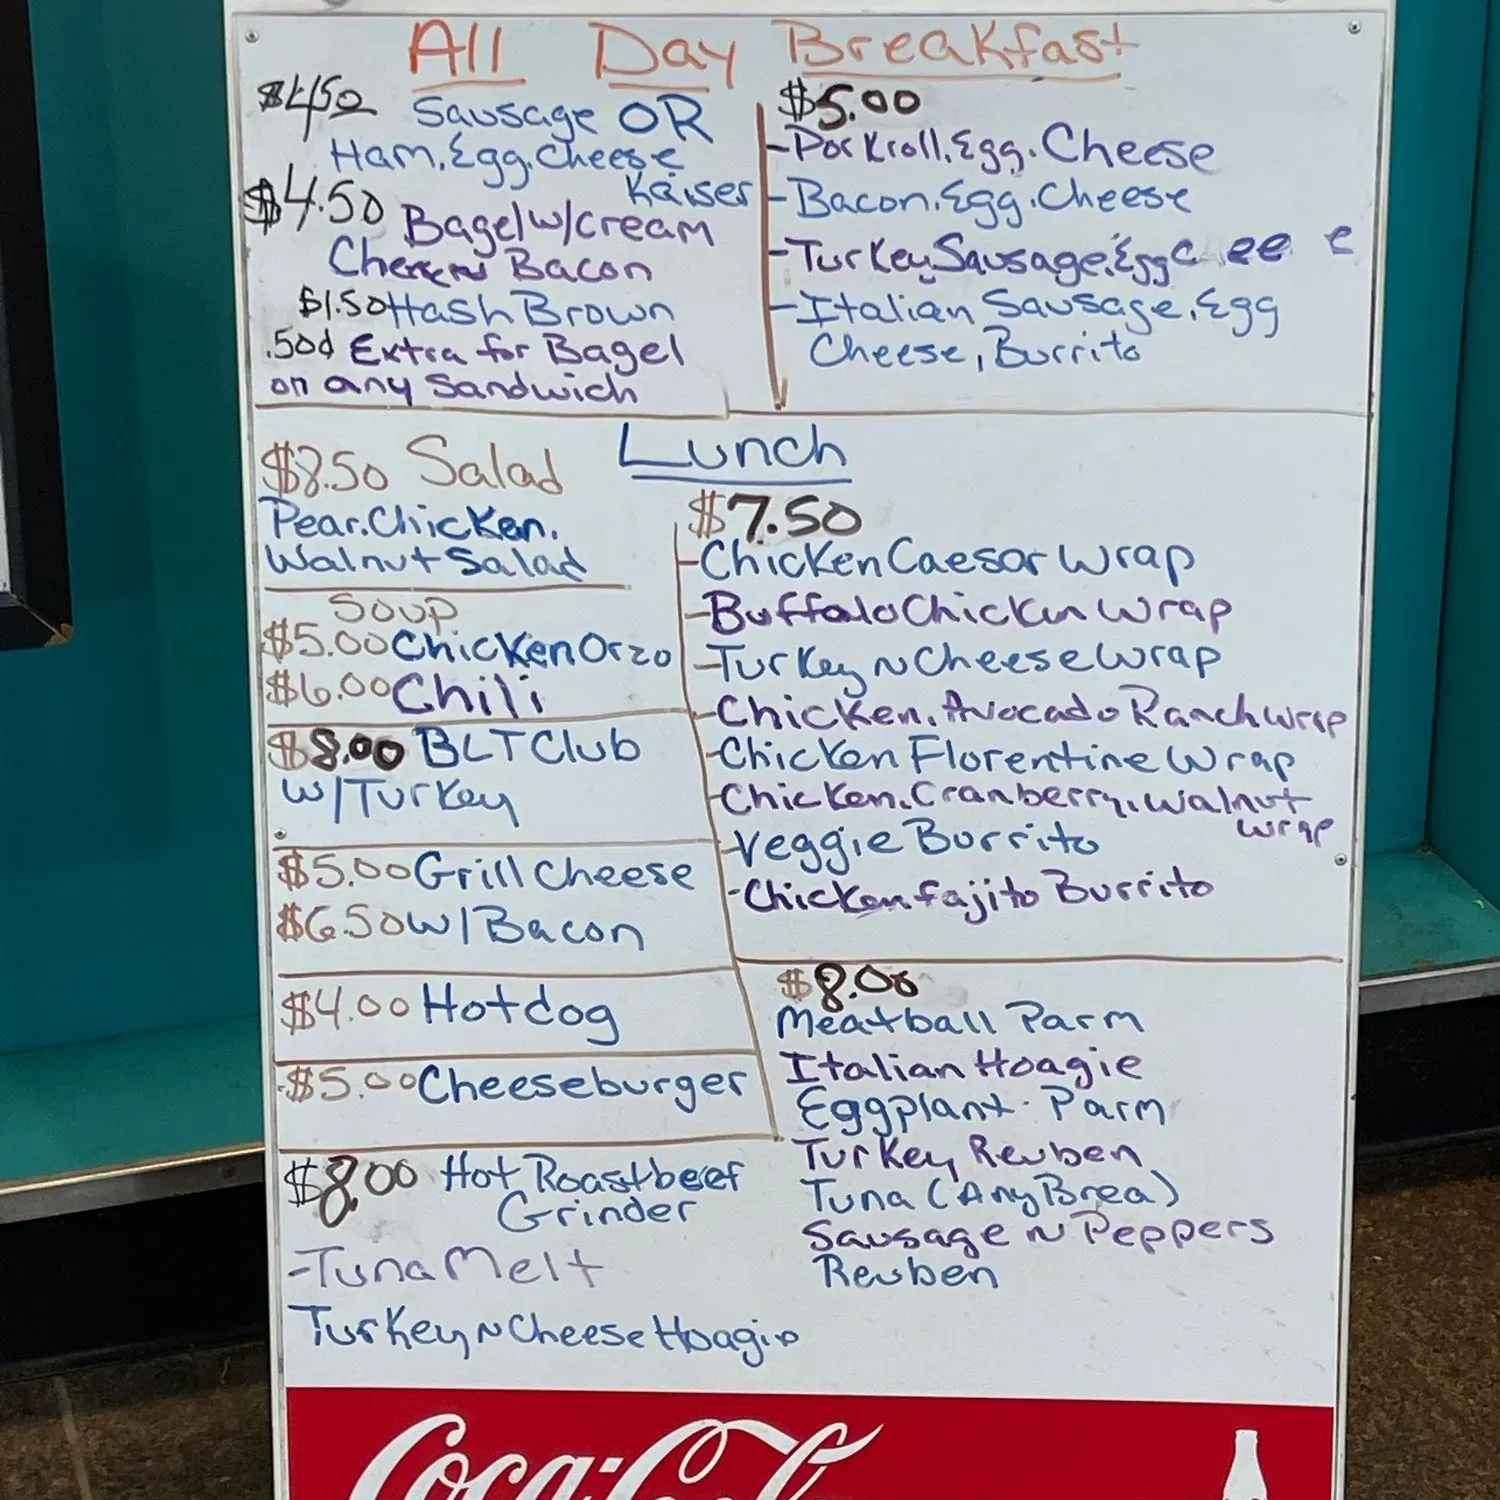 All Day Breakfast
$4.50 Sausage OR
Ham, Egg, Cheese
Kaiser
$4.50 Bagel w/cream
Cheese n Bacon
$1.50 Hash Brown
.50¢ Extra for Bagel
on any Sandwich
$5.00
-Porkroll, Egg, Cheese
-Bacon, Egg, Cheese
-Turkey Sausage, Egg C ee e
-Italian Sausage, Egg
Cheese, Burrito
Lunch
$8.50 Salad
Pear, Chicken,
Walnut Salad
Soup
$5.00 Chicken Orzo
$6.00 Chili
$8.00 BLT Club
w/Turkey
$5.00 Grill Cheese
$6.50 w/Bacon
$4.00 Hotdog
$5.00 Cheeseburger
$8.00 Hot Roastbeef
Grinder
-Tuna Melt
Turkey n Cheese Hoagie
$7.50
-Chicken Caesar Wrap
-Buffalo Chicken Wrap
-Turkey n Cheese Wrap
-Chicken, Avocado Ranch Wrap
-Chicken Florentine Wrap
-Chicken, Cranberry, Walnut
Wrap
-Veggie Burrito
-Chicken Fajito Burrito
$8.00
Meatball Parm
Italian Hoagie
Eggplant Parm
Turkey Reuben
Tuna (Any Brea)
Sausage n Peppers
Reuben
Coca-Cola